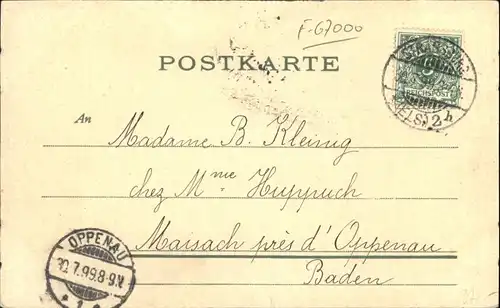 F-67000
POSTKARTE
STRASSBURG
REICHSPOST
(ELS) 2 h
An
Madame B. Kleinig
chez Mme Huppuch
Maisach près d'Oppenau
Baden
OPPENAU
30.7.99.8-9.V.
* 1 *